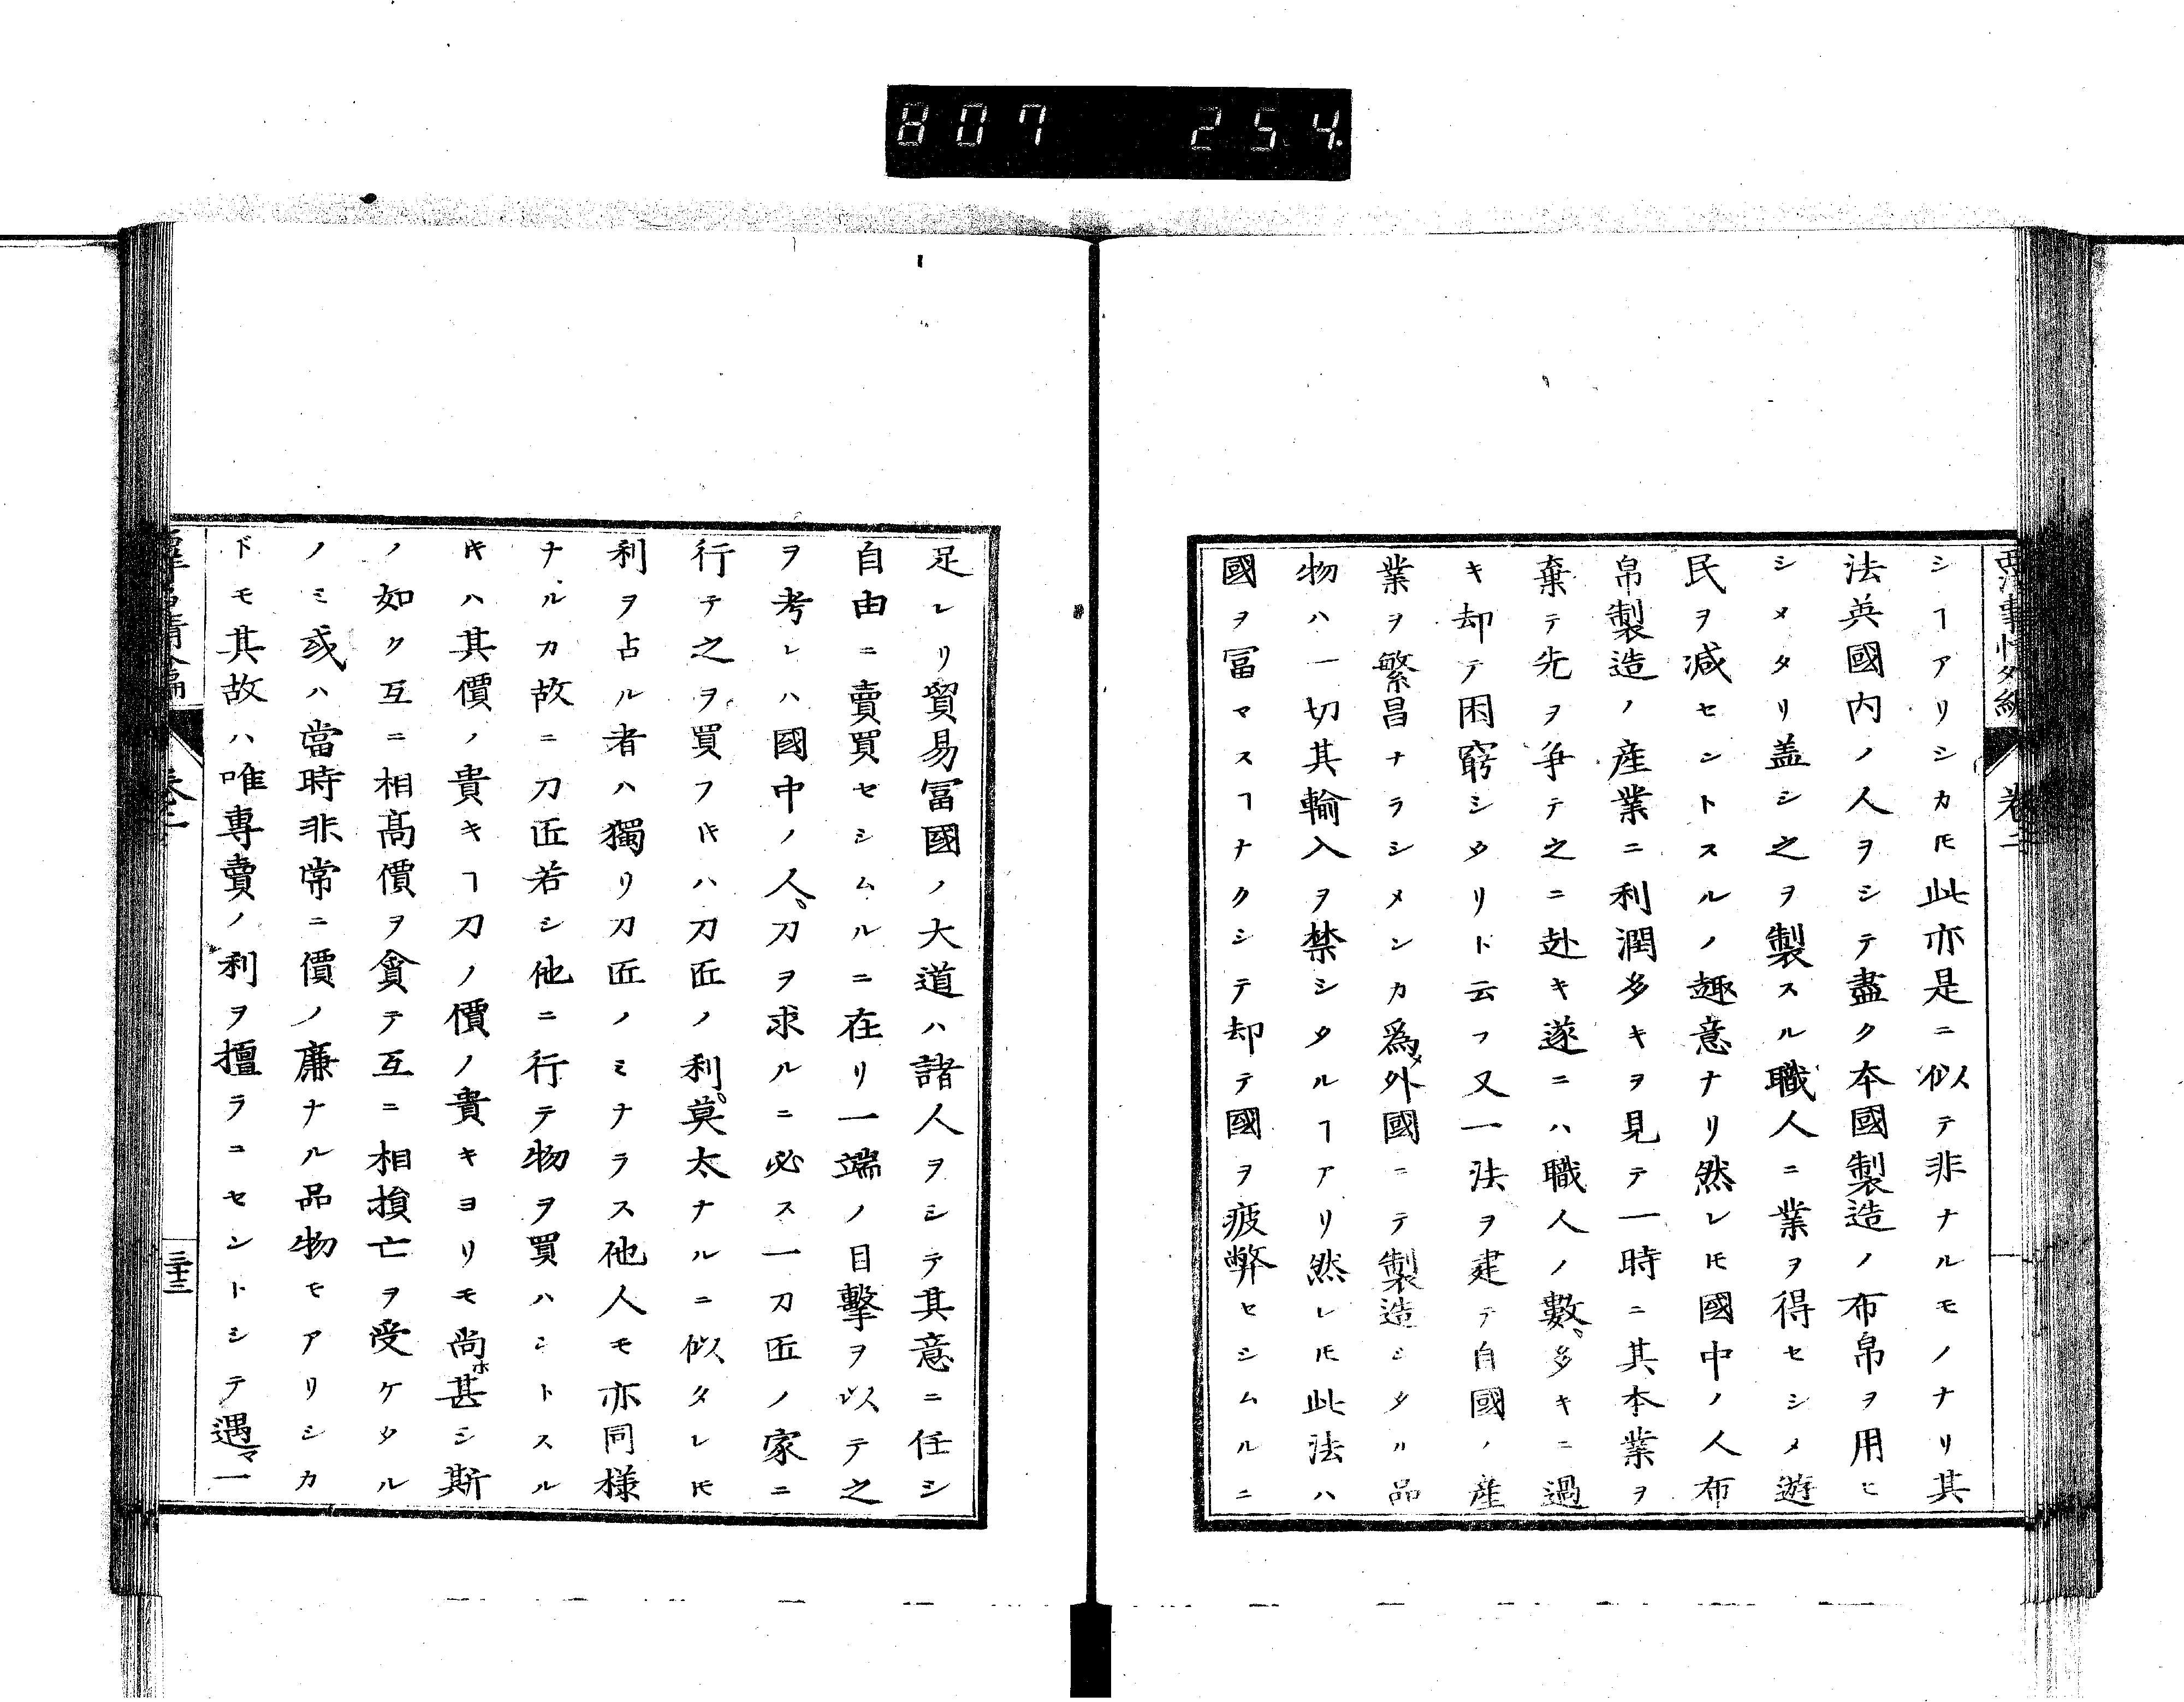 807 254
西洋事情外編 卷二
シヿアリシカ𪜈此亦是ニ似テ非ナルモノナリ其
法英國内ノ人ヲシテ盡ク本國製造ノ布帛ヲ用ヒ
シメタリ盖シ之ヲ製スル職人ニ業ヲ得セシメ遊
民ヲ减セントスルノ趣意ナリ然レ𪜈國中ノ人布
帛製造ノ産業ニ利潤多キヲ見テ一時ニ其本業ヲ
棄テ先ヲ爭テ之ニ赴キ遂ニハ職人ノ數多キニ過
キ却テ困窮シタリト云フ又一法ヲ建テ自國ノ産
業ヲ繁昌ナラシメンカ爲メ外國ニテ製造シタル品
物ハ一切其輸入ヲ禁シタルヿアリ然レ𪜈此法ハ
國ヲ冨マスヿナクシテ却テ國ヲ疲弊セシムルニ
足レリ貿易冨國ノ大道ハ諸人ヲシテ其意ニ任シ
自由ニ賣買セシムルニ在リ一端ノ目擊ヲ以テ之
ヲ考レハ國中ノ人刀ヲ求ルニ必ス一刀匠ノ家ニ
行テ之ヲ買フ𪜈ハ刀匠ノ利莫太ナルニ似タレ𪜈
利ヲ占ル者ハ獨リ刀匠ノミナラス他人モ亦同樣
ナルカ故ニ刀匠若シ他ニ行テ物ヲ買ハントスル
𪜈ハ其價ノ貴キヿ刀ノ價ノ貴キヨリモ尚ホ甚シ斯
ノ如ク互ニ相髙價ヲ貪テ互ニ相損亡ヲ受ケタル
ノミ或ハ當時非常ニ價ノ廉ナル品物モアリシカ
ドモ其故ハ唯專賣ノ利ヲ擅ラニセントシテ遇マ一
卷二
三十三